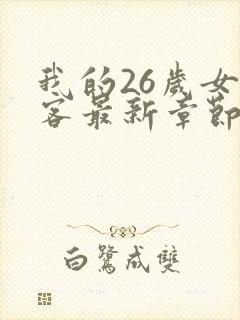 我的26歲女
客最新章節
白鷺成雙